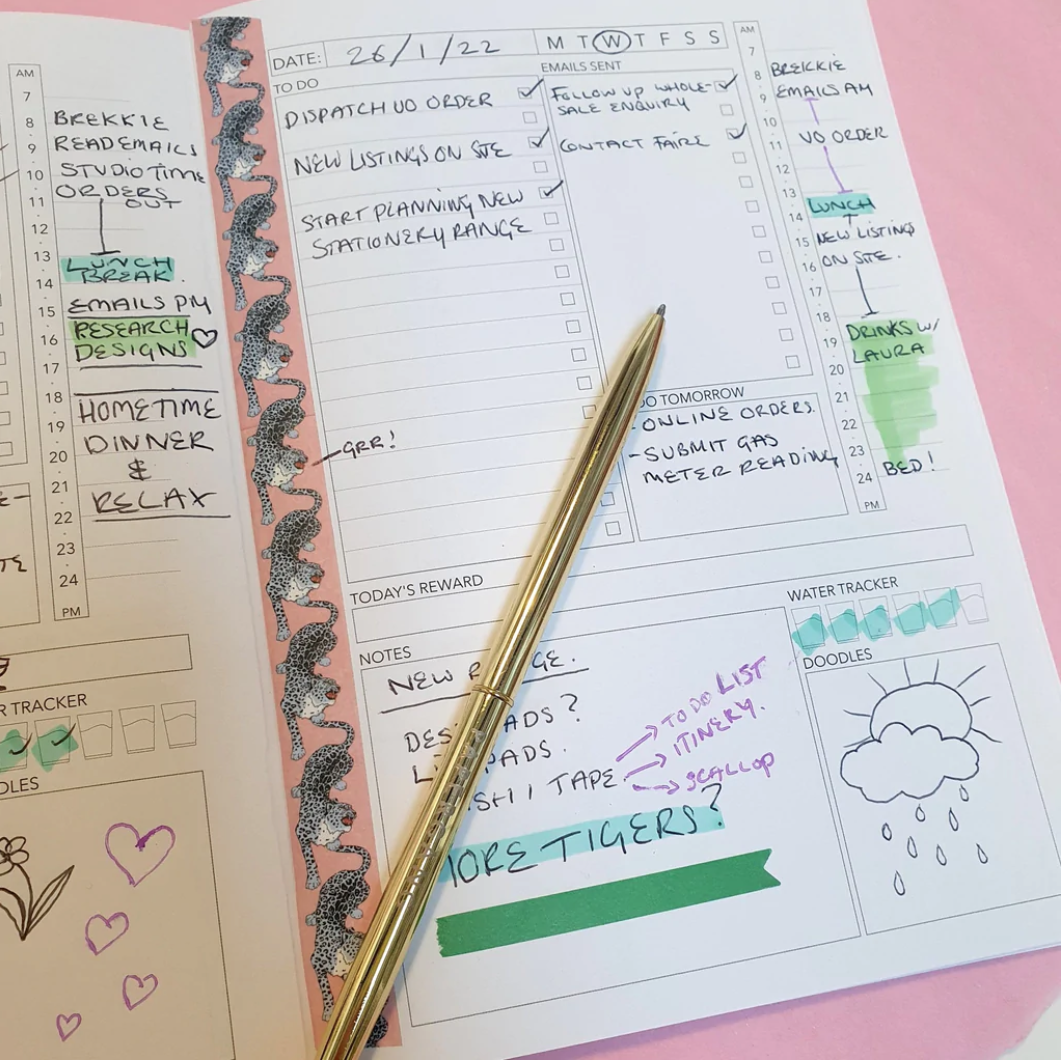 AM
7
8
9
10
11
12
13
14
15
16
17
18
19
20
21
22
23
24
PM
BREKKIE
READ EMAILS
STUDIO TIME
ORDERS
OUT
LUNCH
BREAK.
EMAILS PM
RESEARCH
DESIGNS
HOMETIME
DINNER
&
RELAX
DATE: 26/1/22
M T W T F S S
TO DO
DISPATCH UO ORDER
NEW LISTINGS ON SITE
START PLANNING NEW
STATIONERY RANGE
EMAILS SENT
FOLLOW UP WHOLE-
SALE ENQUIRY
CONTACT FAIRE
AM
7
8
9
10
11
12
13
14
15
16
17
18
19
20
21
22
23
24
PM
BREKKIE
EMAILS AM
UO ORDER
LUNCH
NEW LISTINGS
ON SITE.
DRINKS W/
LAURA
BED!
-GRR!
DO TOMORROW
-ONLINE ORDERS.
-SUBMIT GAS
METER READING
TODAY'S REWARD
WATER TRACKER
NOTES
NEW
GE.
DES
ADS?
PADS.
SHI TAPE
TO DO LIST
ITINERY.
SCALLOP
MORE TIGERS?
DOODLES
R TRACKER
DLES